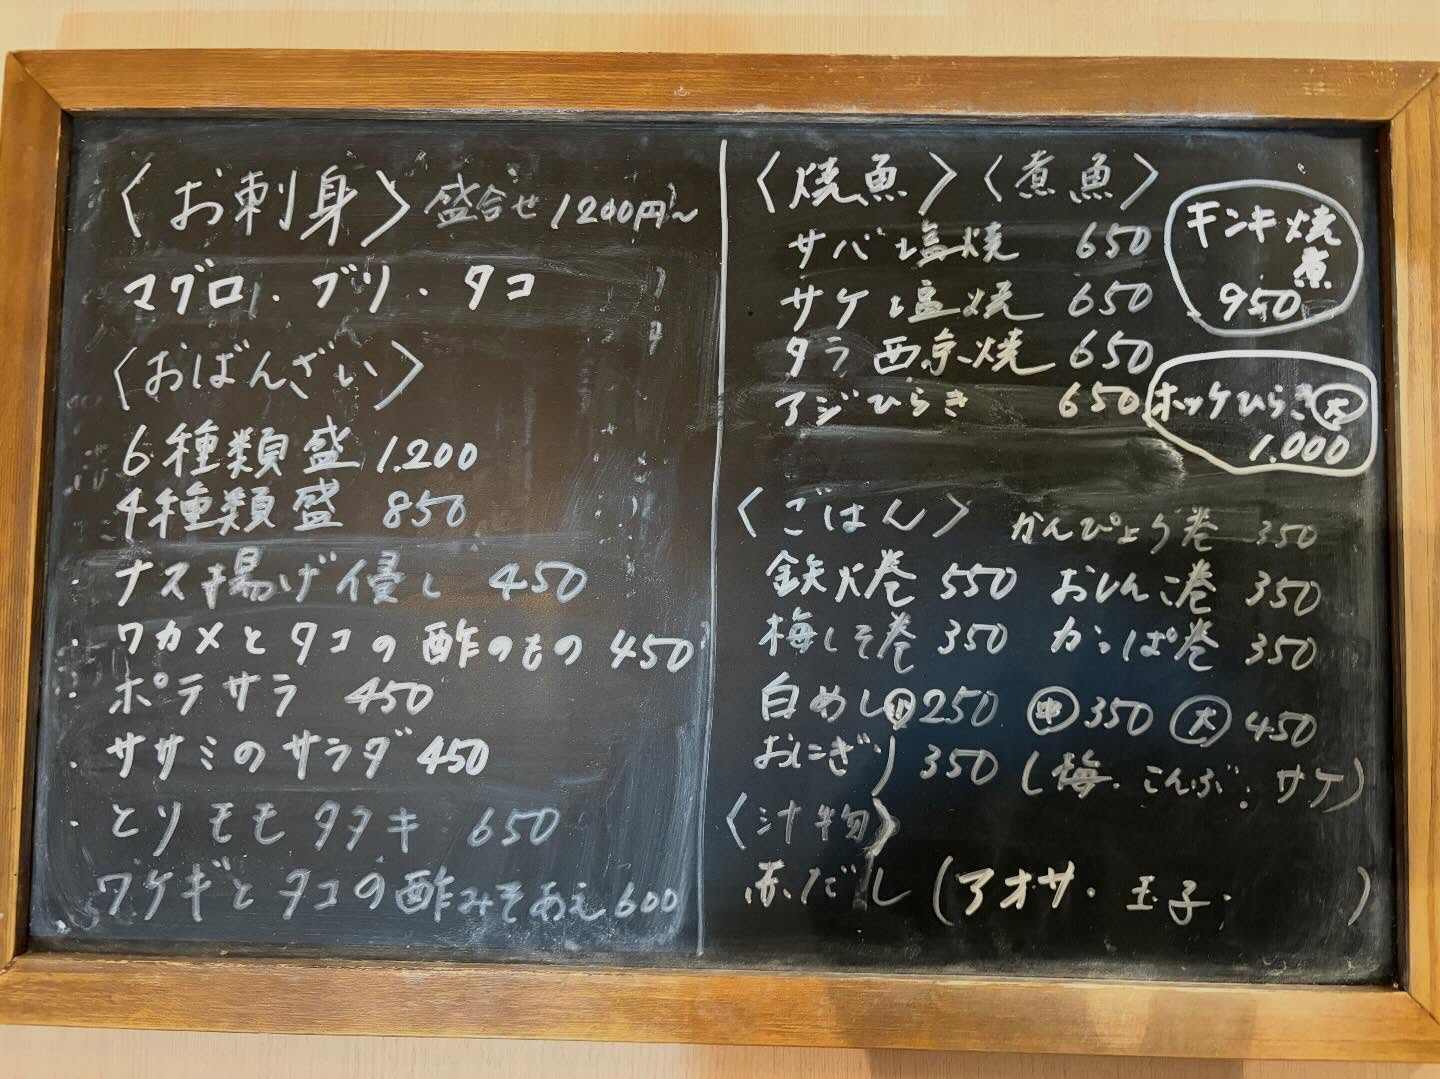 〈お刺身〉盛合せ 1200円〜
マグロ・ブリ・タコ
〈おばんざい〉
6種類盛 1.200
4種類盛 850
ナス揚げ浸し 450
・ワカメとタコの酢のもの 450
・ポテサラ 450
・ササミのサラダ 450
・とりモモタタキ 650
ワケギとタコの酢みそあえ 600
〈焼魚〉〈煮魚〉
サバ塩焼 650
サケ塩焼 650
タラ西京焼 650
アジひらき 650
キンキ焼
煮
950
ホッケひらき大
1.000
〈ごはん〉 かんぴょう巻 350
鉄火巻 550 おしんこ巻 350
梅しそ巻 350 かっぱ巻 350
白めし 小 250 中 350 大 450
おにぎり 350 (梅・こんぶ・サケ)
〈汁物〉
赤だし (アオサ・玉子・ )